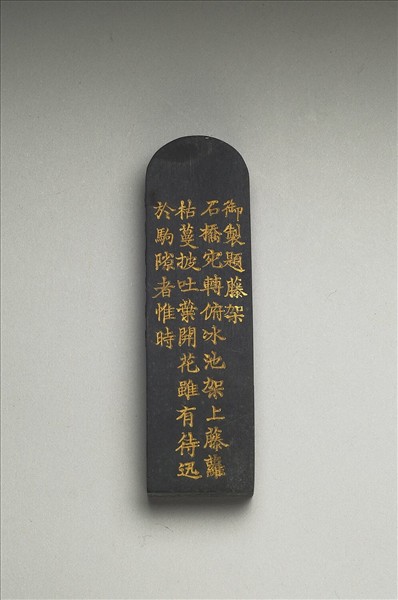 御製題藤架
石橋宛轉俯冰池架上藤蘿
枯蔓披吐葉開花雖有待迅
於駒隙者惟時